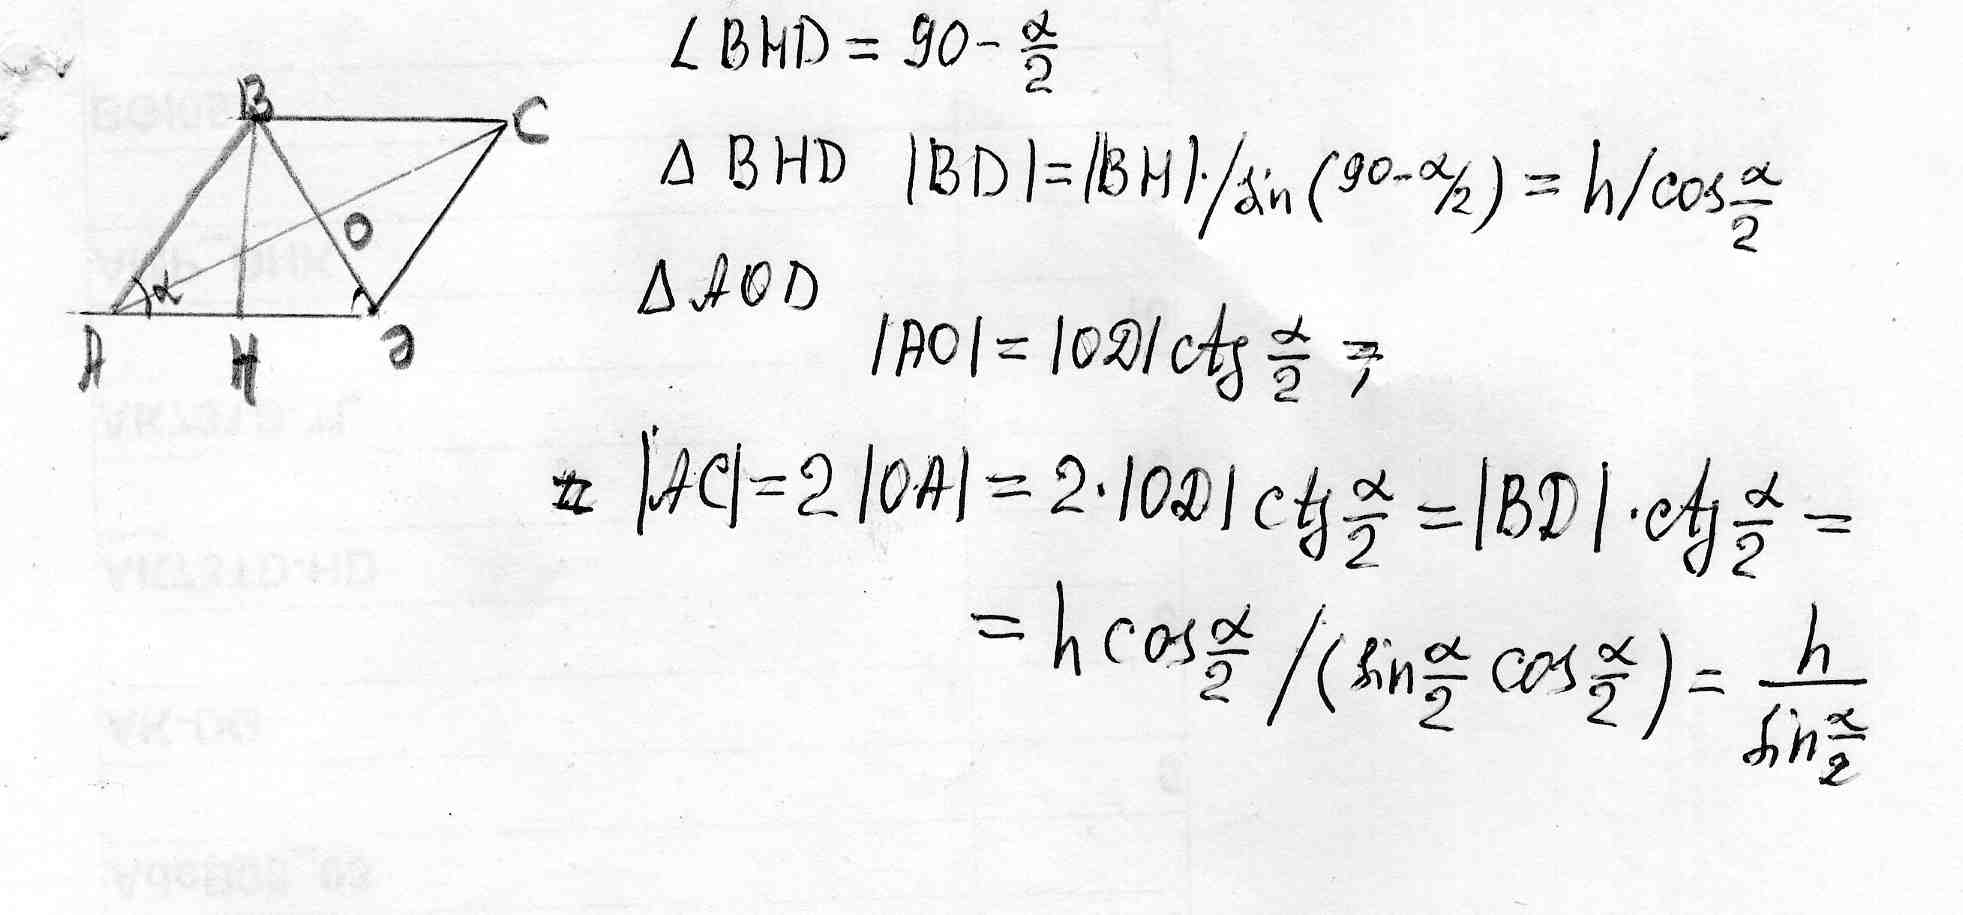 ∠BHD = 90 - α/2
B
C
Δ BHD |BD| = |BH| · / sin(90-α/2) = h/cos α/2
O
α
Δ AOD
A
H
D
|AO| = |OD| ctg α/2 ⇒
|AC| = 2|OA| = 2·|OD| ctg α/2 = |BD| · ctg α/2 =
= h cos α/2 / (sin α/2 cos α/2) = h / sin α/2